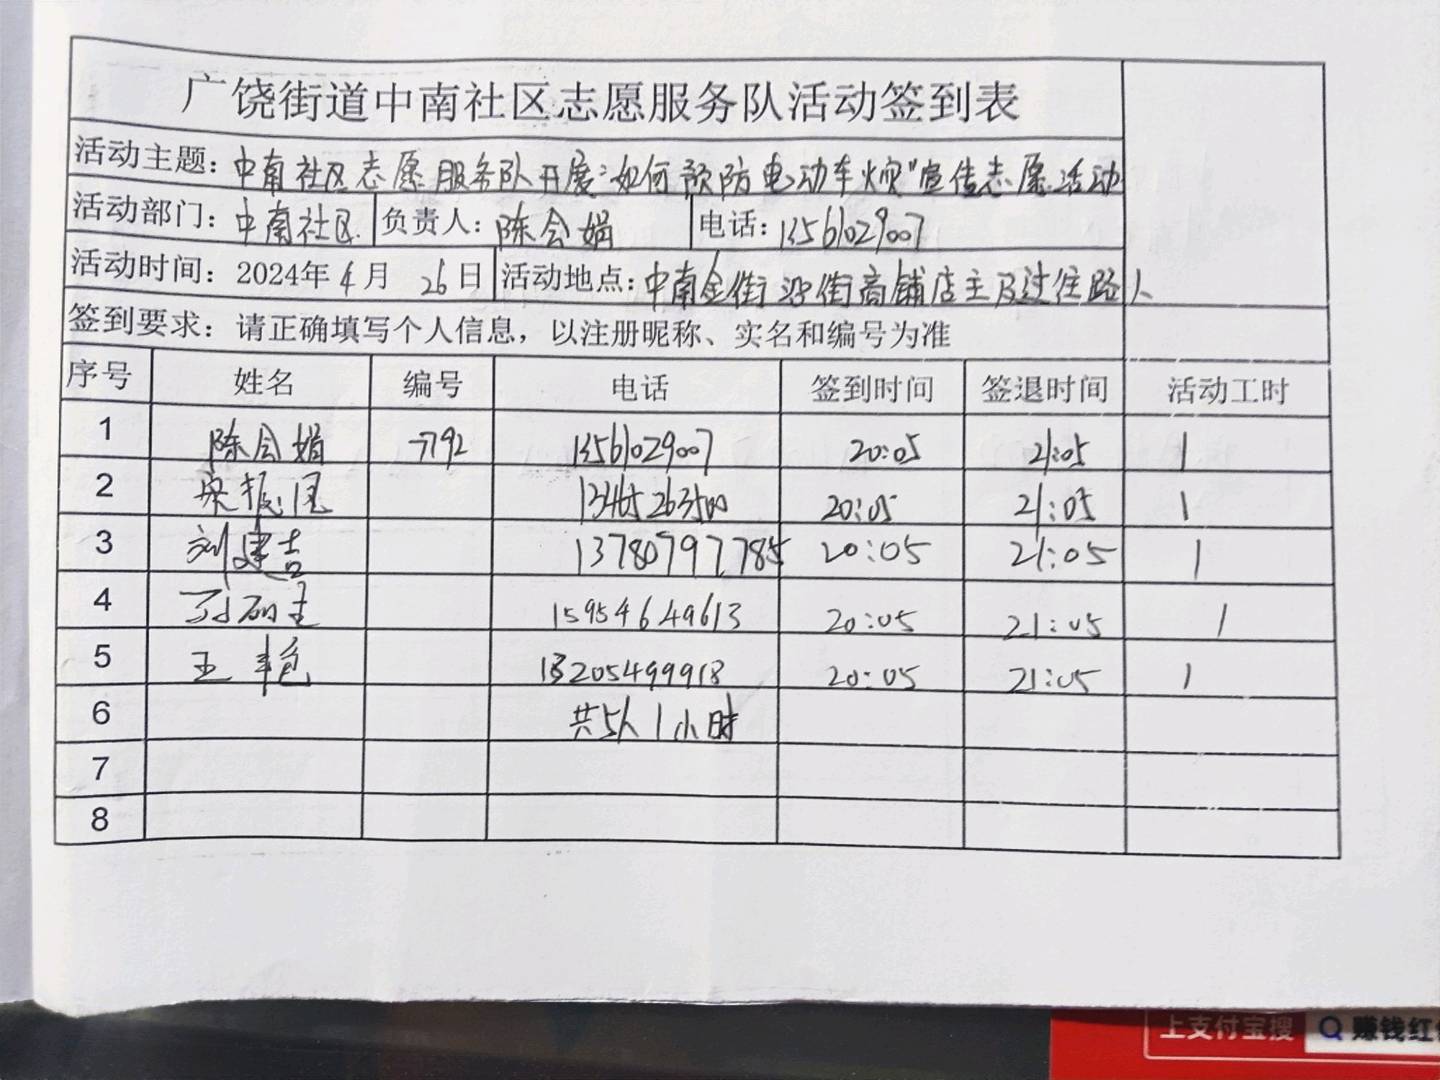 广饶街道中南社区志愿服务队活动签到表
活动主题：中南社区志愿服务队开展"如何预防电动车火灾"宣传志愿活动
活动部门：中南社区 负责人：陈会娟 电话：13561029007
活动时间：2024年4月26日 活动地点：中南金街沿街商铺店主及过往路人
签到要求：请正确填写个人信息，以注册昵称、实名和编号为准
序号 姓名 编号 电话 签到时间 签退时间 活动工时
1 陈会娟 7792 13561029007 20:05 21:05 1
2 20:05 21:05 1
3 刘建吉 13780797785 20:05 21:05 1
4 15954649613 20:05 21:05 1
5 王 13205499918 20:05 21:05 1
6 共5人1小时
7
8
上支付宝搜 赚钱红